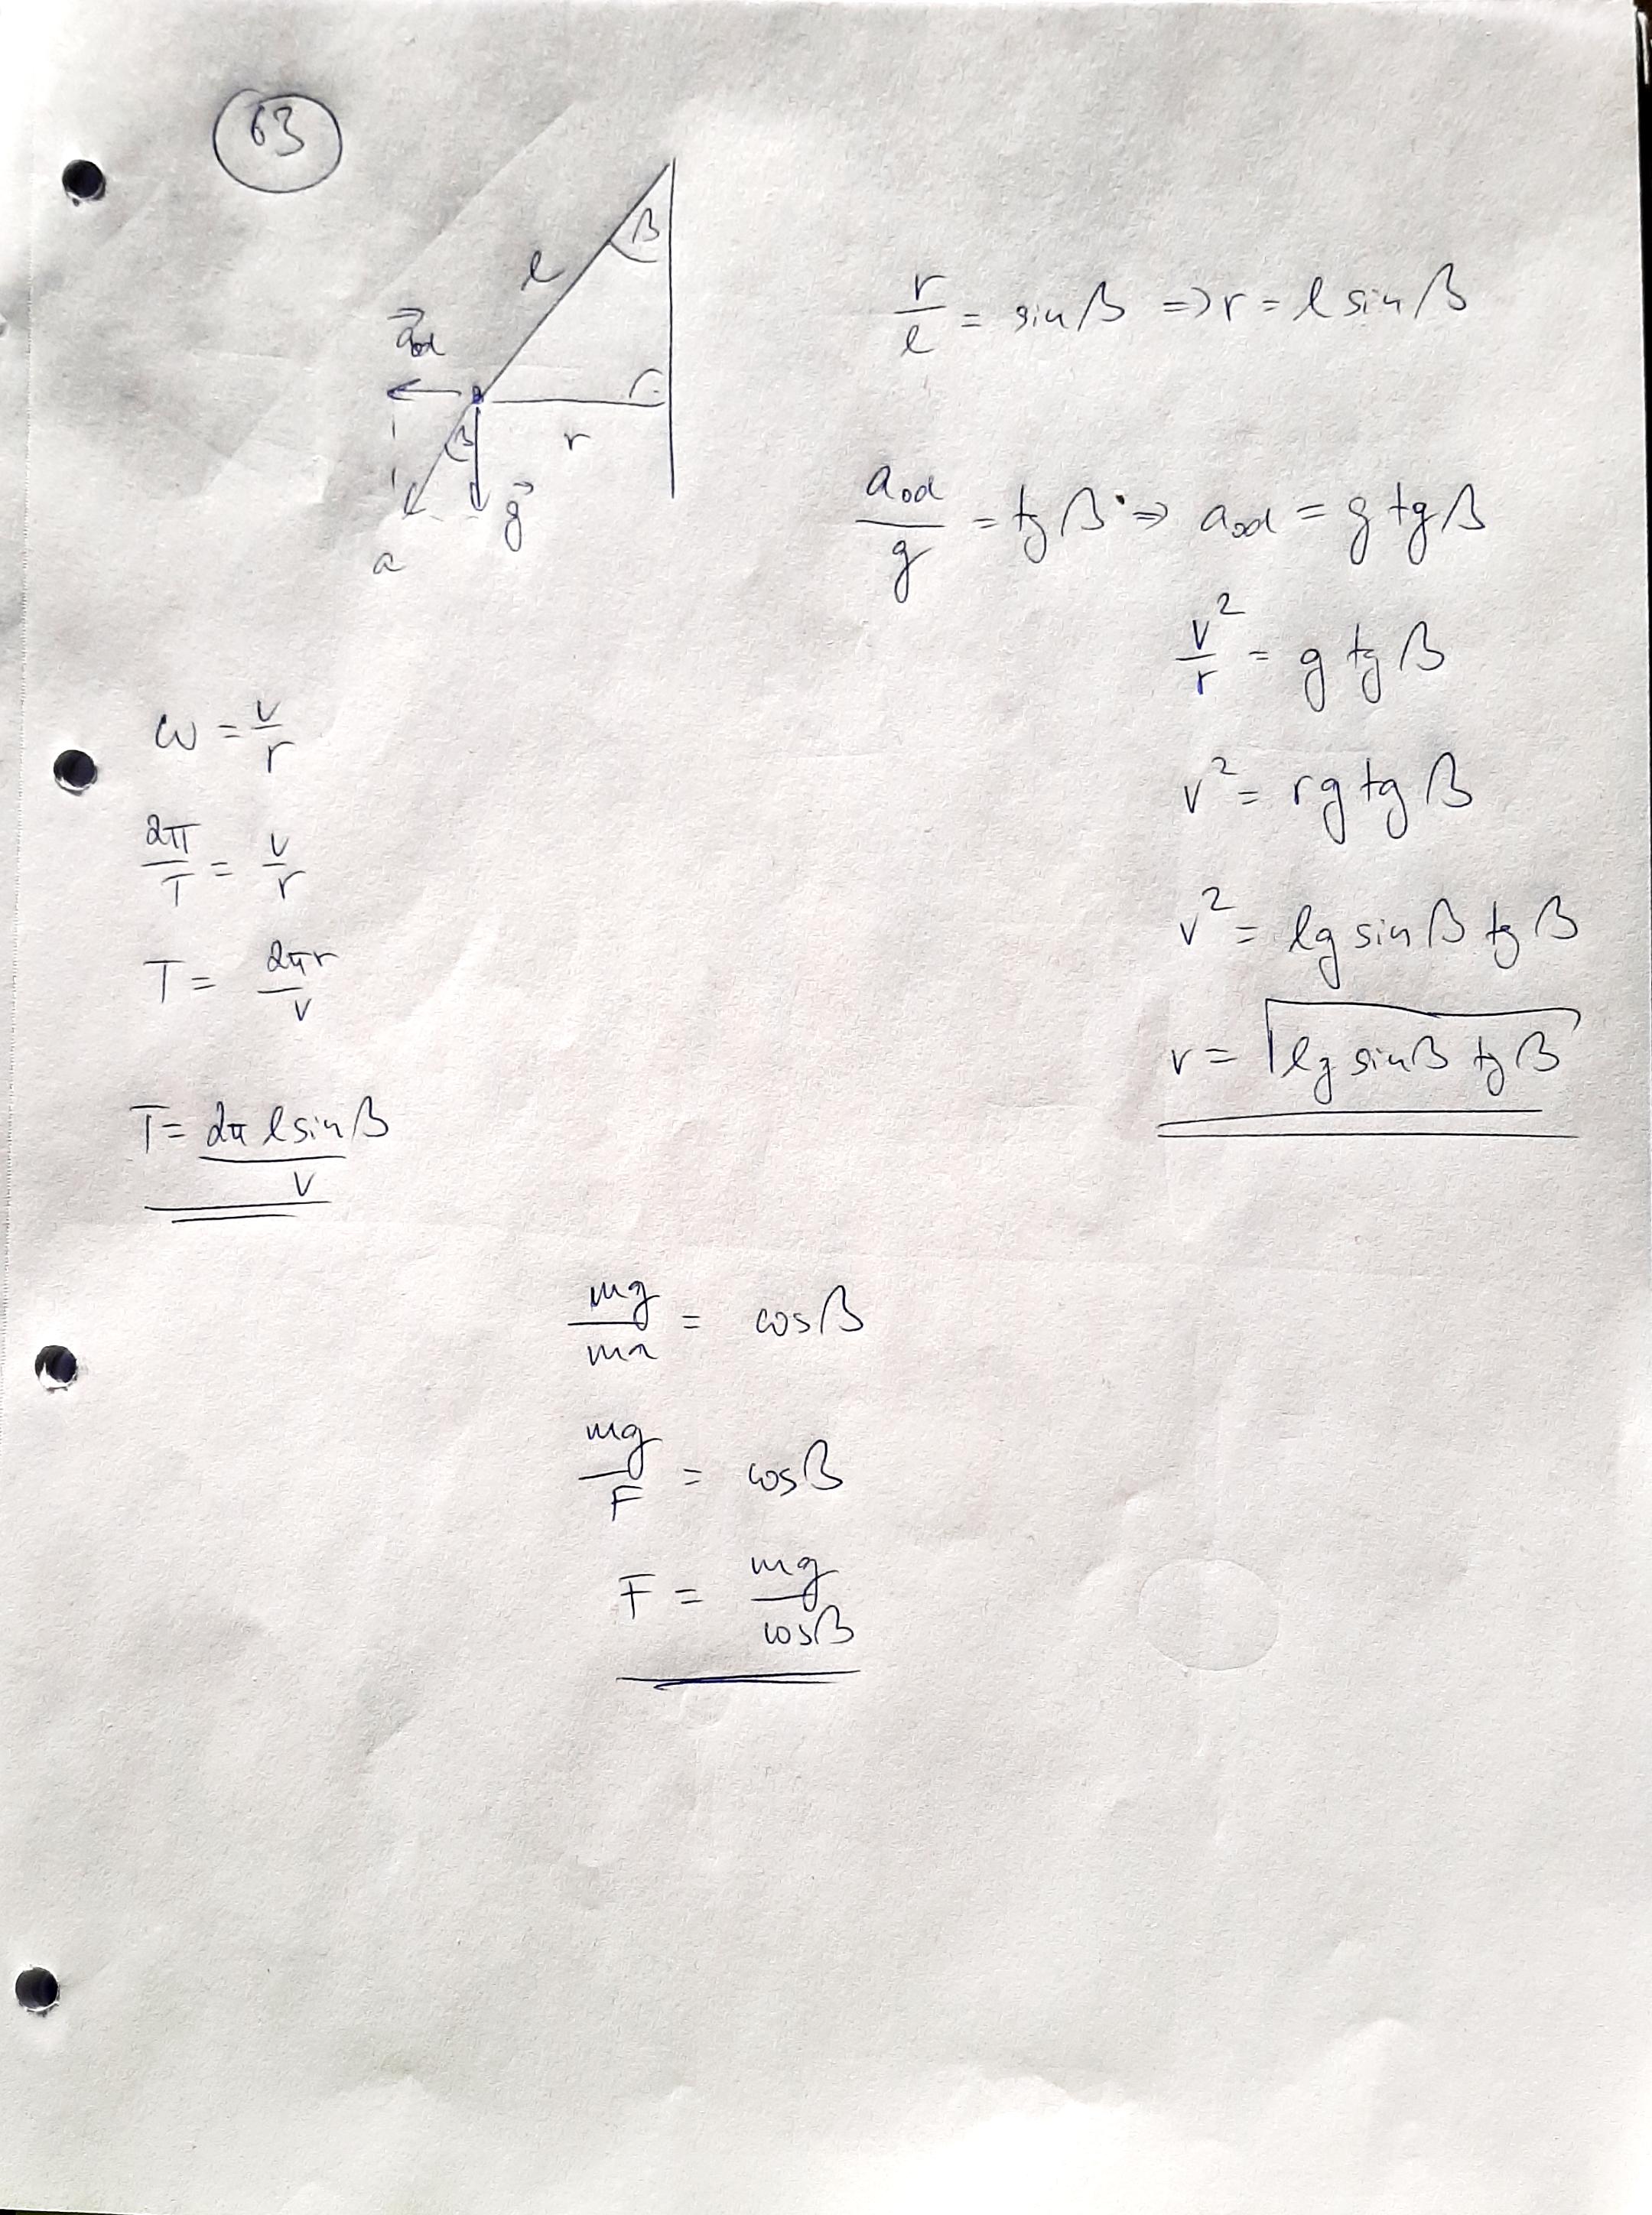 63
β
l
r/l = sin β => r = l sin β
a⃗od
r
β
g⃗
a
aod/g = tg β => aod = g tg β
v²/r = g tg β
v² = r g tg β
v² = l g sin β tg β
v = √(l g sin β tg β)
ω = v/r
2π/T = v/r
T = 2πr/v
T = 2π l sin β/v
mg/ma = cos β
mg/F = cos β
F = mg/cos β